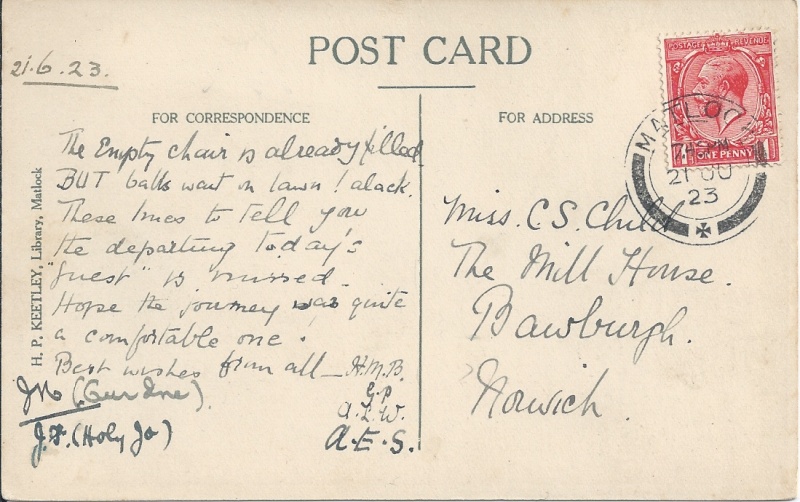 POST CARD
21.6.23.
FOR CORRESPONDENCE
FOR ADDRESS
The Empty chair is already filled
BUT balls want on lawn! alack.
These lines to tell you
the departing today's
"guest" is missed.
Hope the journey was quite
a comfortable one.
Best wishes from all — H.M.B.
G.P
A.L.W.
A.E.S.
(Our Ine).
J.F. (Holy Jo)
Miss. C S. Child
The Mill House.
Bawburgh.
Norwich.
H. P. KEETLEY, Library, Matlock
POSTAGE REVENUE
ONE PENNY
MATLOCK
21 JU
23